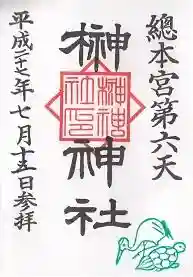 總本宮第六天
榊神社
榊神社之印
平成二十七年七月十五日参拝